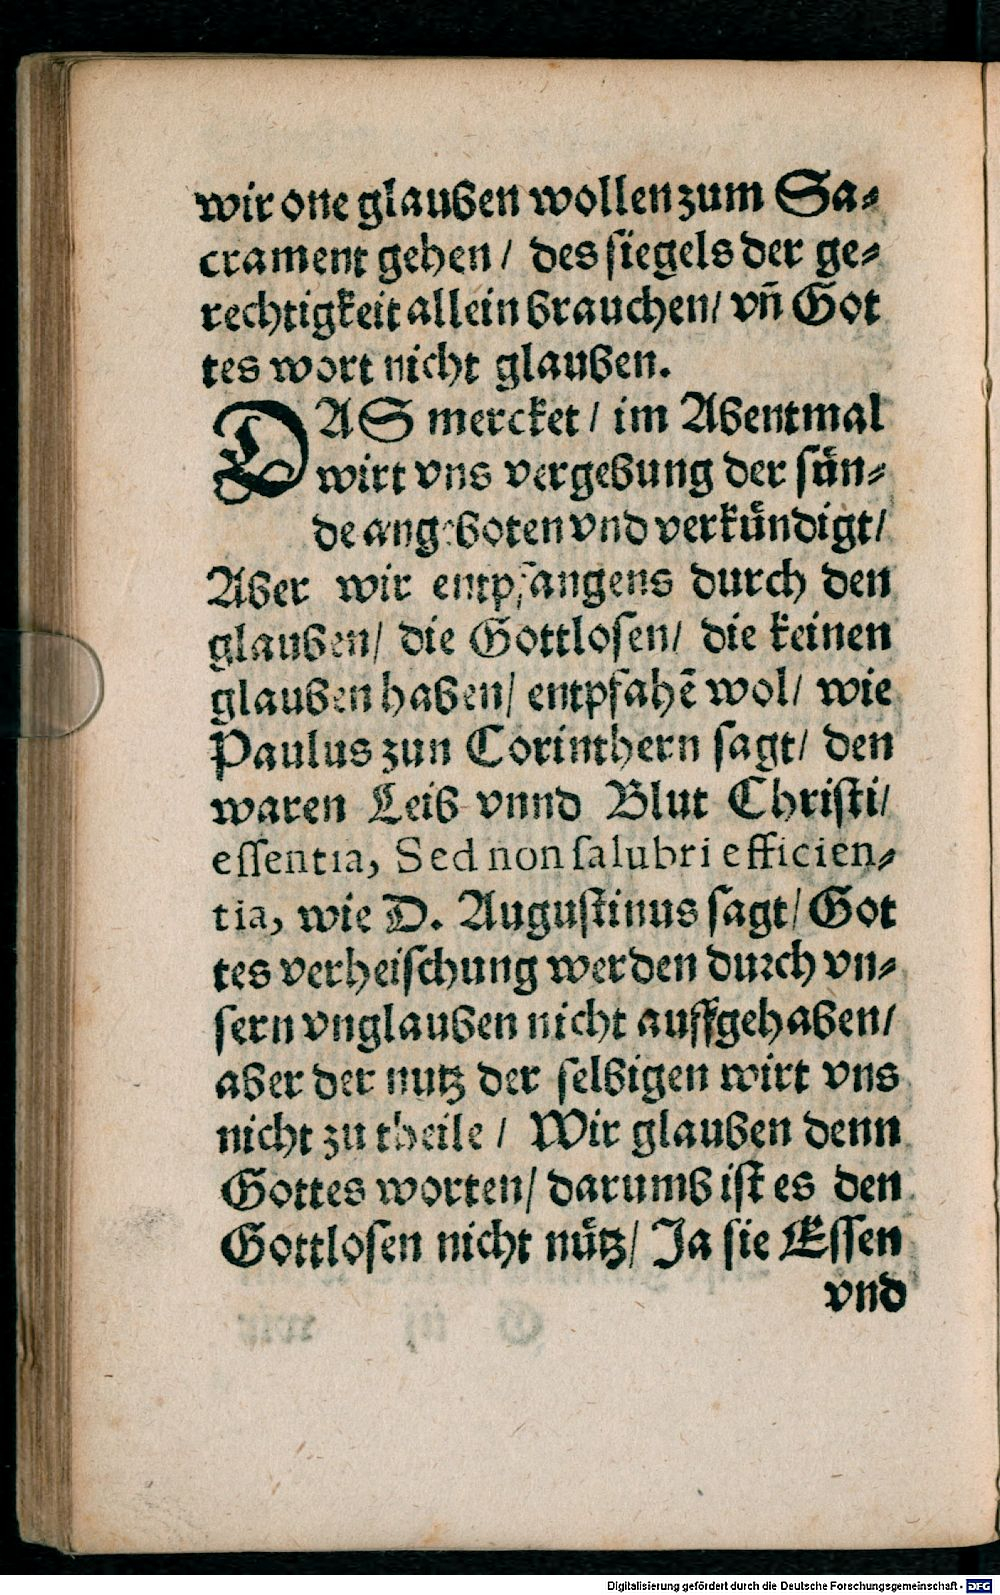 wir one glauben wollen zum Sa⸗
crament gehen / des siegels der ge⸗
rechtigkeit allein brauchen / vñ Got
tes wort nicht glauben.
DAS mercket / im Abentmal
wirt vns vergebung der sün⸗
de angeboten vnd verkündigt /
Aber wir entpfangens durch den
glauben / die Gottlosen / die keinen
glauben haben / entpfahē wol / wie
Paulus zun Corinthern sagt / den
waren Leib vnnd Blut Christi /
essentia, Sed non salubri efficien⸗
tia, wie D. Augustinus sagt / Got
tes verheischung werden durch vn⸗
sern vnglauben nicht auffgehaben /
aber der nutz der selbigen wirt vns
nicht zu theile / Wir glauben denn
Gottes worten / darumb ist es den
Gottlosen nicht nütz / Ja sie Essen
vnd
Digitalisierung gefördert durch die Deutsche Forschungsgemeinschaft - DFG